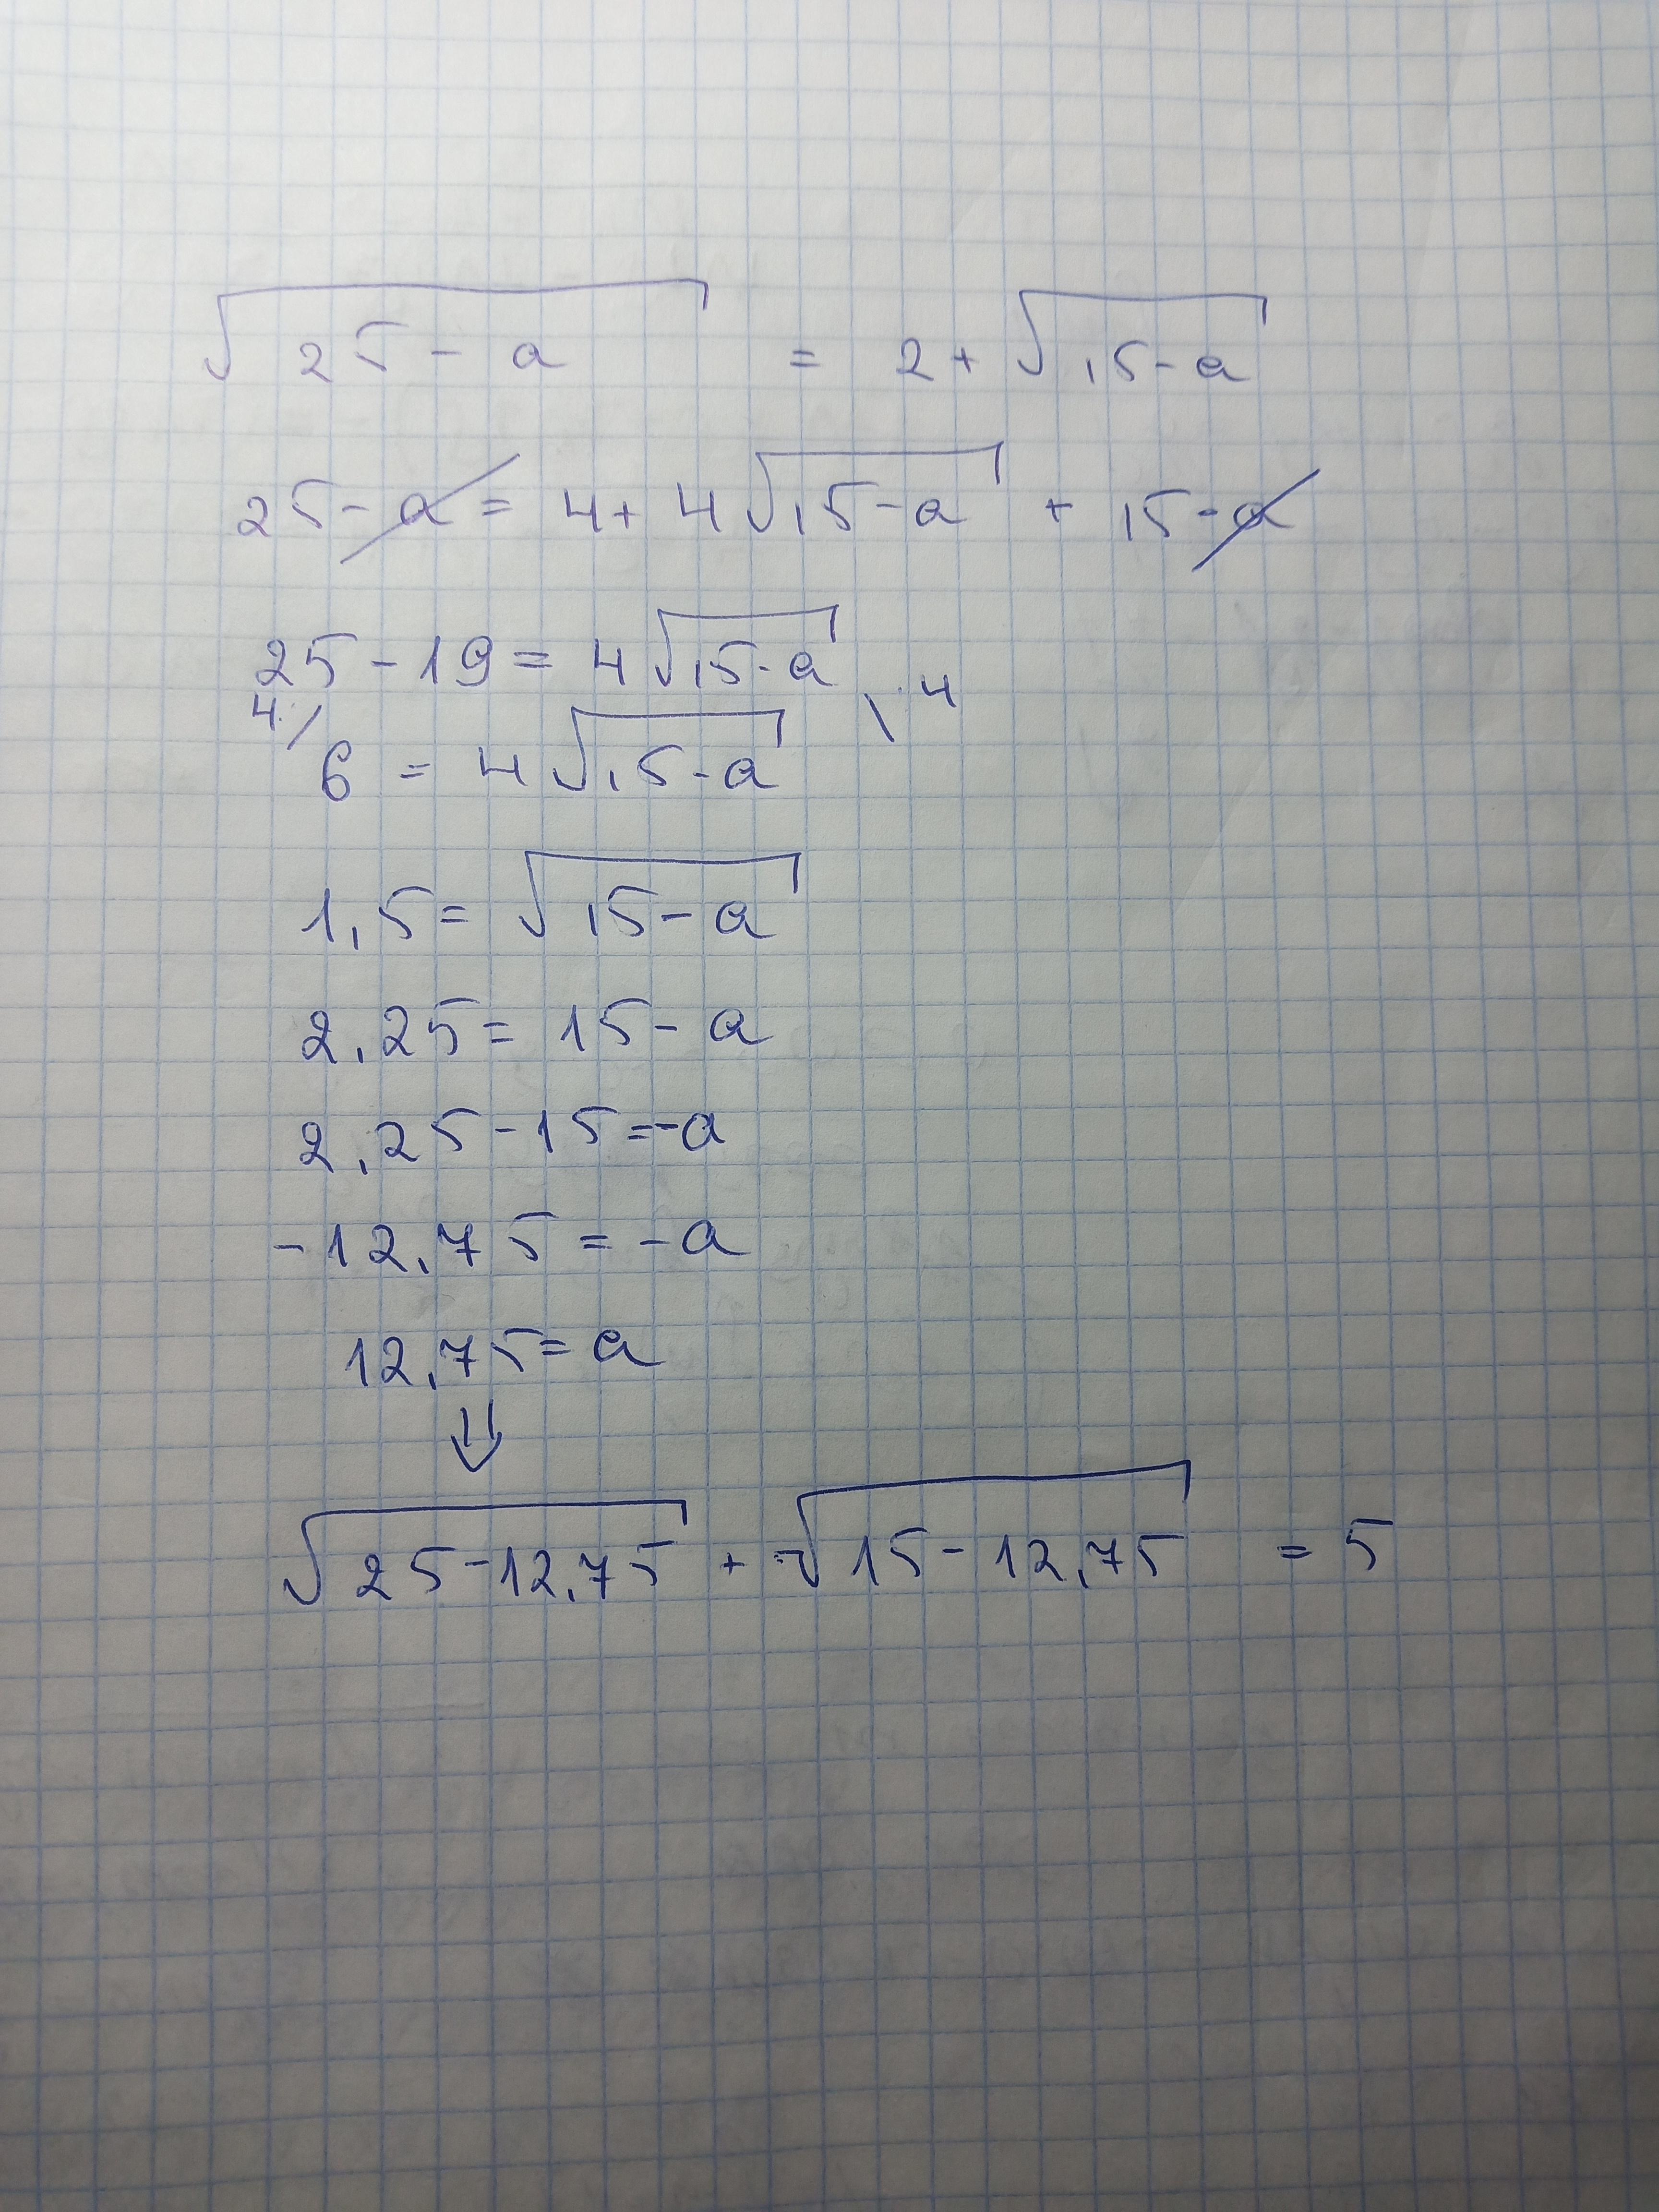 √25 - a = 2 + √15-a
25 - a = 4 + 4√15-a + 15-a
25 - 19 = 4√15-a
4:/ 6 = 4√15-a \ :4
1,5 = √15-a
2,25 = 15 - a
2,25 - 15 = -a
-12,75 = -a
12,75 = a
⇓
√25-12,75 + √15-12,75 = 5